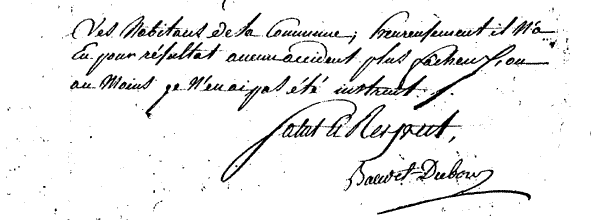 Les habitans de la Commune; heureusement il N'a
Eu pour résultat aucun accident plus facheux, ou
au Moins je N'en ai pas été instruit.
Salut & Respect,